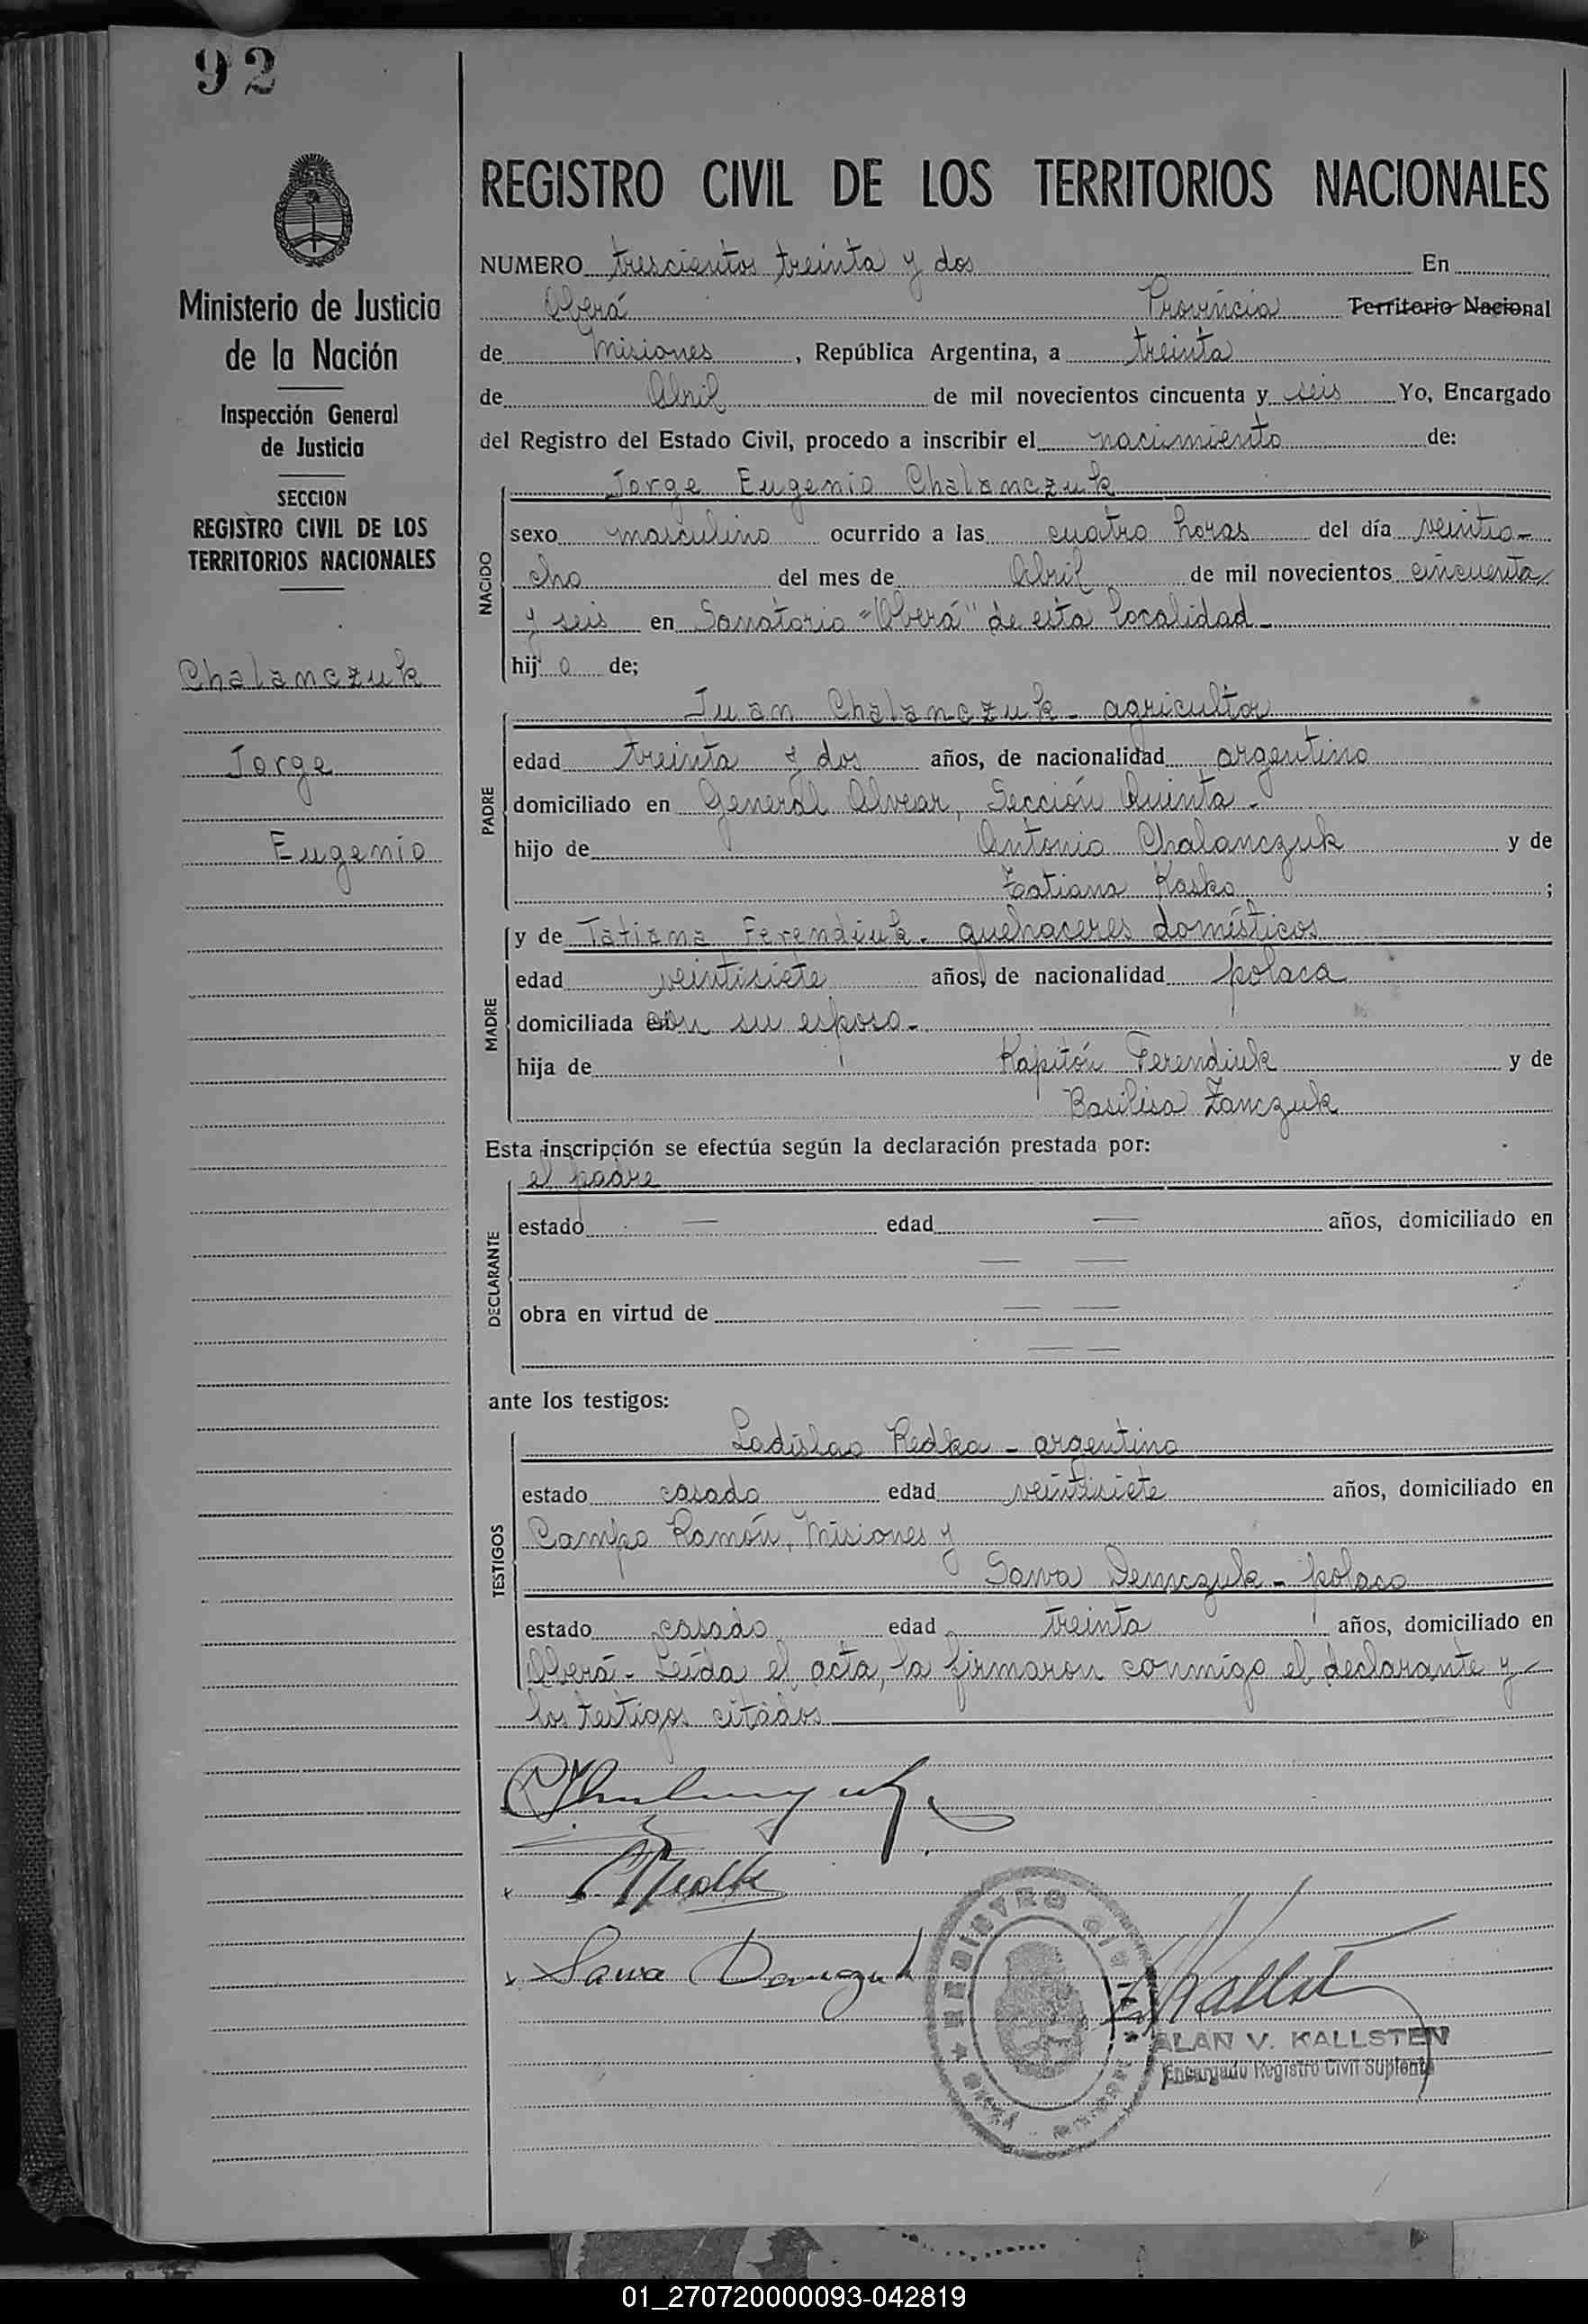 92
REGISTRO CIVIL DE LOS TERRITORIOS NACIONALES
Ministerio de Justicia
de la Nación
Inspección General
de Justicia
SECCION
REGISTRO CIVIL DE LOS
TERRITORIOS NACIONALES
Chalanczuk
Jorge
Eugenio
NUMERO trescientos treinta y dos En
Oberá Provincia Territorio Nacional
de Misiones, República Argentina, a treinta
de Abril de mil novecientos cincuenta y seis Yo, Encargado
del Registro del Estado Civil, procedo a inscribir el nacimiento de:
NACIDO
Jorge Eugenio Chalanczuk
sexo masculino ocurrido a las cuatro horas del día veintio-
cho del mes de Abril de mil novecientos cincuenta
y seis en Sanatorio "Oberá" de esta localidad-
hijo de;
PADRE
Juan Chalanczuk - agricultor
edad treinta y dos años, de nacionalidad argentino
domiciliado en General Alvear, Sección Quinta-
hijo de Antonio Chalanczuk y de
Tatiana Kasko ;
MADRE
y de Tatiana Ferendiuk- quehaceres domésticos
edad veintisiete años, de nacionalidad polaca
domiciliada en con su esposo-
hija de Kapitón Ferendiuk y de
Basilisa Zanczuk
Esta inscripción se efectúa según la declaración prestada por:
DECLARANTE
el padre
estado — edad — años, domiciliado en
— —
obra en virtud de — —
— —
ante los testigos:
TESTIGOS
Ladislao Redka - argentino
estado casado edad veintisiete años, domiciliado en
Campo Ramón, Misiones y
Sawa Demczuk - polaco
estado casado edad treinta años, domiciliado en
Oberá- Leída el acta, la firmaron conmigo el declarante y
los testigos citados
Sawa Demczuk
REGISTRO CIVIL
ALAN V. KALLSTEN
Encargado Registro Civil Suplente
01_270720000093-042819